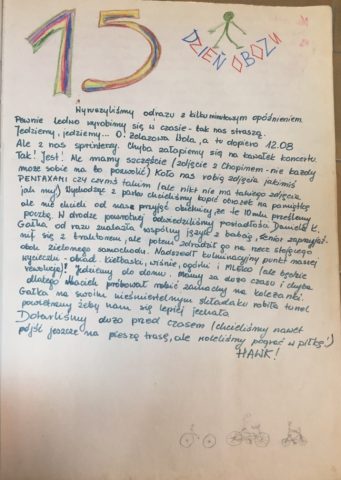 15
DZIEŃ OBOZU
Wyruszyliśmy odrazu z kilku minutowym opóźnieniem.
Pewnie ledwo wyrobimy się w czasie - tak nas straszą.
Jedziemy, jedziemy... O! Żelazowa Wola, a to dopiero 12.08
Ale z nas sprinterzy. Chyba załapiemy się na kawałek koncertu.
Tak! Jest! Ale mamy szczęście (zdjęcie z Chopinem - nie każdy
może sobie na to pozwolić) Koło nas robią zdjęcia jakimiś
PENTAXAMI czy czymś takim (ale nikt nie ma takiego zdjęcia
jak my) Wychodząc z parku chcieliśmy kupić obrazek na pamiątkę
ale nie chcieli od nas przyjąć obietnicy, że te 10 mln prześlemy
pocztą. W drodze powrotnej odwiedziliśmy posiadłości Danielki K.
Gałka od razu znalazła wspólny język z babcią, senior zaprzyjaź-
nił się z traktorem, ale potem zdradził go na rzecz stojącego
obok zielonego samochodu. Nadszedł kulminacyjny punkt naszej
wycieczki - obiad - kiełbaski, wiśnie, ogórki i MLEKO (ale będzie
rewolucja)! Jedziemy do domu. Mamy za dużo czasu i chyba
dlatego Maciek próbował robić zamachy na koleżanki.
Gałka na swoim nieśmiertelnym składaku robiła tunel
powietrzny żeby nam się lepiej jechało
Dotarliśmy dużo przed czasem (chcieliśmy nawet
pójść jeszcze na pieszą trasę, ale woleliśmy pograć w piłkę!)
HAWK!